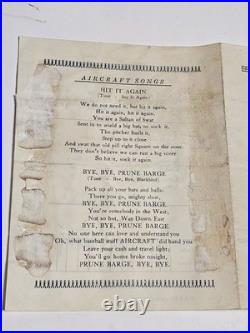 AIRCRAFT SONGS
HIT IT AGAIN
(Tune - Say It Again)
We do not need it, but hit it again,
Hit it again, hit it again.
You are a Sultan of Swat
Sent in to wield a big bat, to sock it.
The pitcher hurls it,
Step up to it close
And swat that old pill right Square on the nose.
They don't believe we can run a big score
So hit it, sock it again.
BYE, BYE, PRUNE BARGE
(Tune - Bye, Bye, Blackbird)
Pack up all your bats and balls;
There you go, mighty slow,
BYE, BYE, PRUNE BARGE,
You're somebody in the West;
Not so hot, Way Down East
BYE, BYE, PRUNE BARGE
No one here can love and understand you
Oh, what baseball stuff AIRCRAFT did hand you
Leave your cash and travel light;
You'll go home broke tonight,
PRUNE BARGE, BYE, BYE.